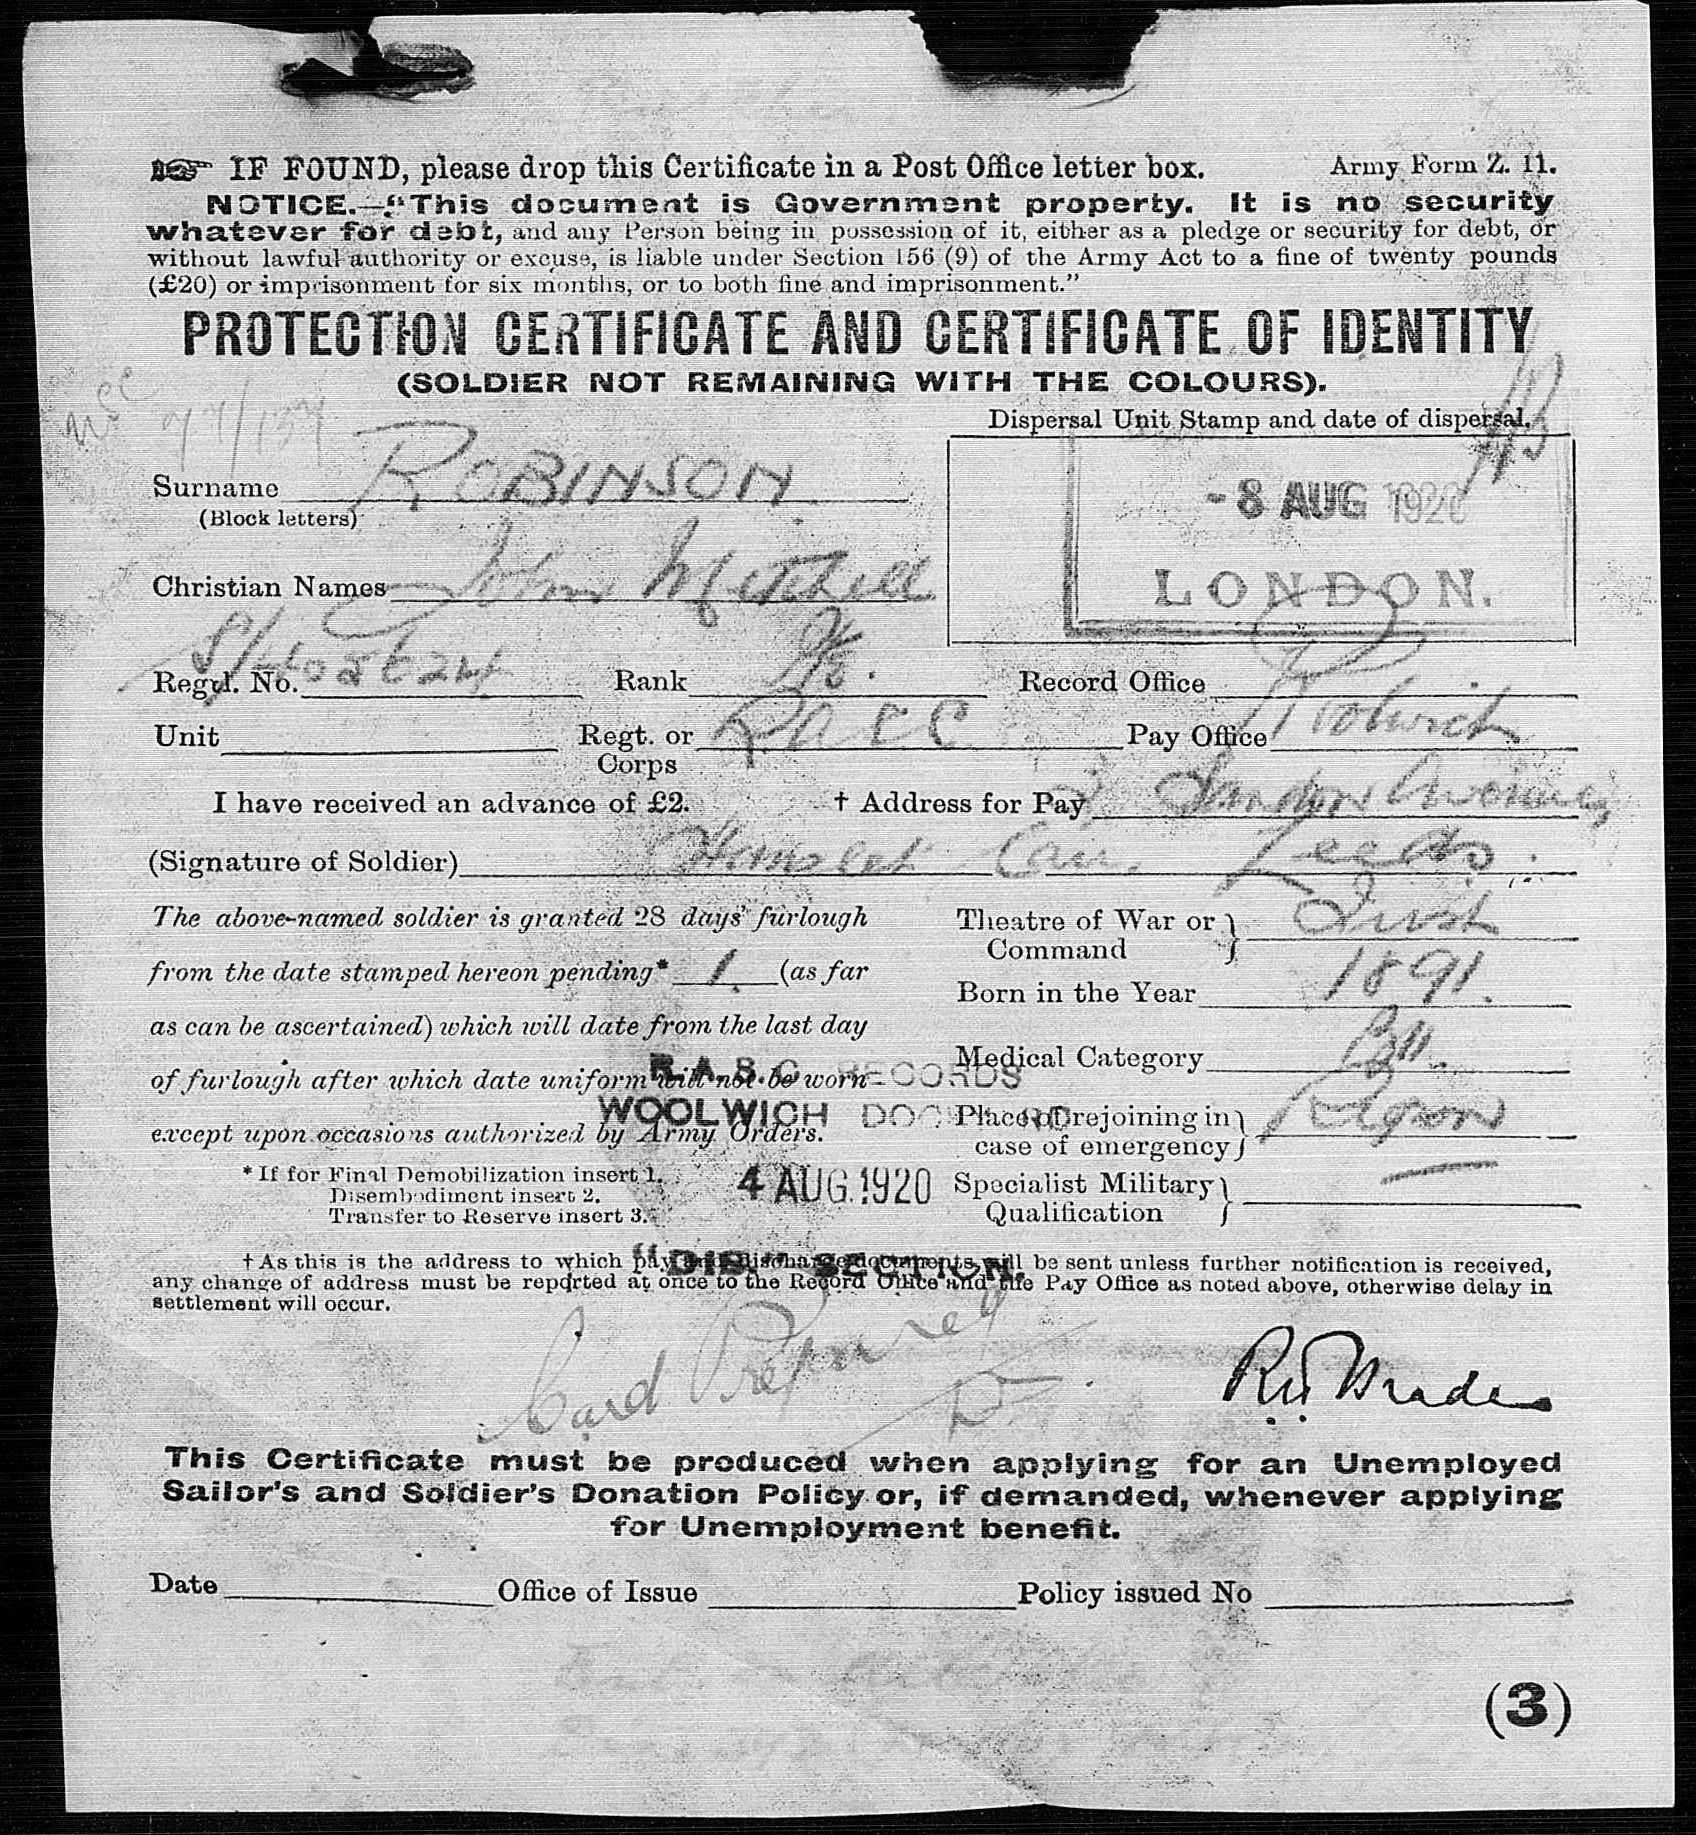 IF FOUND, please drop this Certificate in a Post Office letter box. Army Form Z. 11.
NOTICE.—"This document is Government property. It is no security
whatever for debt, and any Person being in possession of it, either as a pledge or security for debt, or
without lawful authority or excuse, is liable under Section 156 (9) of the Army Act to a fine of twenty pounds
(£20) or imprisonment for six months, or to both fine and imprisonment."
PROTECTION CERTIFICATE AND CERTIFICATE OF IDENTITY
(SOLDIER NOT REMAINING WITH THE COLOURS).
Dispersal Unit Stamp and date of dispersal.
Surname ROBINSON
(Block letters)
-8 AUG 1920
LONDON.
Christian Names John Mitchell
Regtl. No. S/405624 Rank Record Office
Unit Regt. or Corps RASC Pay Office Woolwich
I have received an advance of £2. † Address for Pay Avenue,
(Signature of Soldier) Leeds.
The above-named soldier is granted 28 days' furlough
from the date stamped hereon pending* 1. (as far
as can be ascertained) which will date from the last day
of furlough after which date uniform will not be worn
except upon occasions authorized by Army Orders.
Theatre of War or Command
Born in the Year 1891.
Medical Category BII.
Place of rejoining in case of emergency Ripon
Specialist Military Qualification —
R.A.S.C. RECORDS
WOOLWICH DOCKYARD
4 AUG. 1920
"DIS" SECTION.
* If for Final Demobilization insert 1.
Disembodiment insert 2.
Transfer to Reserve insert 3.
† As this is the address to which pay and discharge documents will be sent unless further notification is received,
any change of address must be reported at once to the Record Office and the Pay Office as noted above, otherwise delay in
settlement will occur.
Card Prepared
This Certificate must be produced when applying for an Unemployed
Sailor's and Soldier's Donation Policy or, if demanded, whenever applying
for Unemployment benefit.
Date Office of Issue Policy issued No
(3)